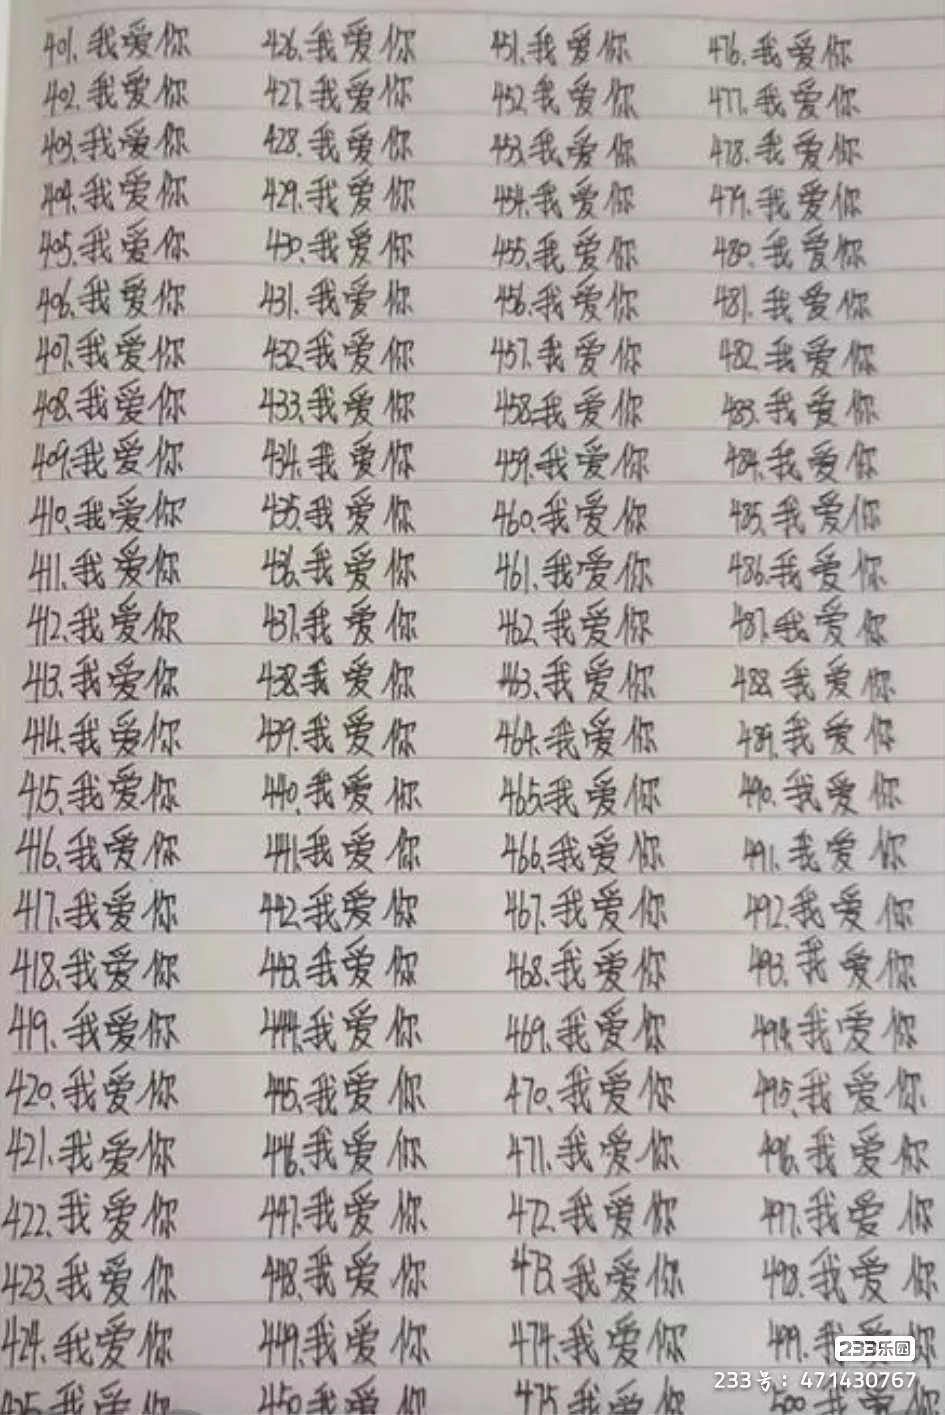 401.我爱你 426.我爱你 451.我爱你 476.我爱你
402.我爱你 427.我爱你 452.我爱你 477.我爱你
403.我爱你 428.我爱你 453.我爱你 478.我爱你
404.我爱你 429.我爱你 454.我爱你 479.我爱你
405.我爱你 430.我爱你 455.我爱你 480.我爱你
406.我爱你 431.我爱你 456.我爱你 481.我爱你
407.我爱你 432.我爱你 457.我爱你 482.我爱你
408.我爱你 433.我爱你 458.我爱你 483.我爱你
409.我爱你 434.我爱你 459.我爱你 484.我爱你
410.我爱你 435.我爱你 460.我爱你 485.我爱你
411.我爱你 436.我爱你 461.我爱你 486.我爱你
412.我爱你 437.我爱你 462.我爱你 487.我爱你
413.我爱你 438.我爱你 463.我爱你 488.我爱你
414.我爱你 439.我爱你 464.我爱你 489.我爱你
415.我爱你 440.我爱你 465.我爱你 490.我爱你
416.我爱你 441.我爱你 466.我爱你 491.我爱你
417.我爱你 442.我爱你 467.我爱你 492.我爱你
418.我爱你 443.我爱你 468.我爱你 493.我爱你
419.我爱你 444.我爱你 469.我爱你 494.我爱你
420.我爱你 445.我爱你 470.我爱你 495.我爱你
421.我爱你 446.我爱你 471.我爱你 496.我爱你
422.我爱你 447.我爱你 472.我爱你 497.我爱你
423.我爱你 448.我爱你 473.我爱你 498.我爱你
424.我爱你 449.我爱你 474.我爱你 499.我爱你
425.我爱你 450.我爱你 475.我爱你 500.我爱你
233乐园
233号：471430767